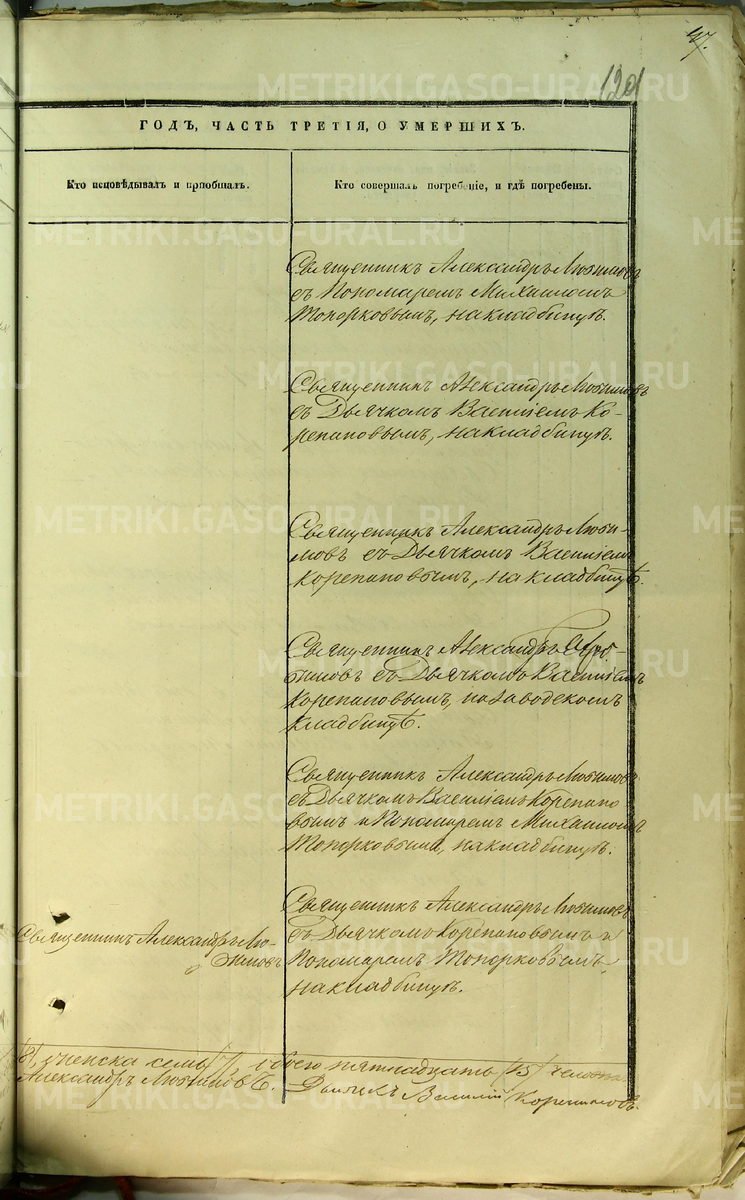 47.
129
ГОДЪ, ЧАСТЬ ТРЕТІЯ, О УМЕРШИХЪ.
Кто исповѣдывалъ и пріобщалъ.
Кто совершалъ погребеніе, и гдѣ погребены.
Священникъ Александръ Любимовъ
съ Пономаремъ Михаиломъ
Топорковымъ, на кладбищѣ.
Священникъ Александръ Любимовъ
съ Дьячкомъ Василіемъ Ко-
репановымъ, на кладбищѣ.
Священникъ Александръ Люби-
мовъ съ Дьячкомъ Василіемъ
Корепановымъ, на кладбищѣ.
Священникъ Александръ
съ Дьячкомъ Василіемъ
Корепановымъ, на Заводскомъ
кладбищѣ.
Священникъ Александръ Любимовъ
съ Дьячкомъ Василіемъ Корепано
вымъ и Пономаремъ Михаиломъ
Топорковымъ, на кладбищѣ.
Священникъ Александръ Лю-
бимовъ
Священникъ Александръ Любимовъ
съ Дьячкомъ Корепановымъ и
Пономаремъ Топорковымъ
на кладбищѣ.
/8/, женска семь /7/ обоего пятнадцать /15/
Александръ Любимовъ. Дьячекъ Василий Корепановъ.
METRIKI.GASO-URAL.RU